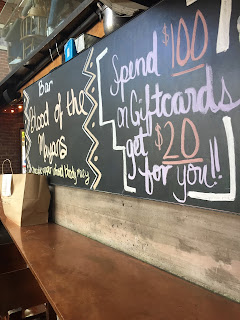 Bar
Blood of the
Mayans
Spend $100
on Giftcards
get $20
for you!!